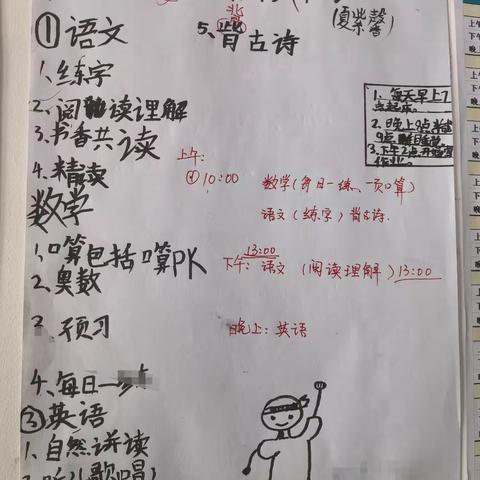 (夏紫馨)
①语文
5、背古诗
1、练字
2、阅读理解
3、书香共读
4、精读
1、每天早上7点起床。
2、晚上8点半
9点睡觉
3、下午2点开始写作业。
上午:
①10:00 数学(每日一练、一页口算)
语文(练字)背古诗.
数学
1、口算包括口算PK
2、奥数
13:00
下午: 语文(阅读理解)13:00
2、预习
晚上:英语
4、每日一
③英语
1、自然拼读
听儿歌(唱)
上午
下午
晚上